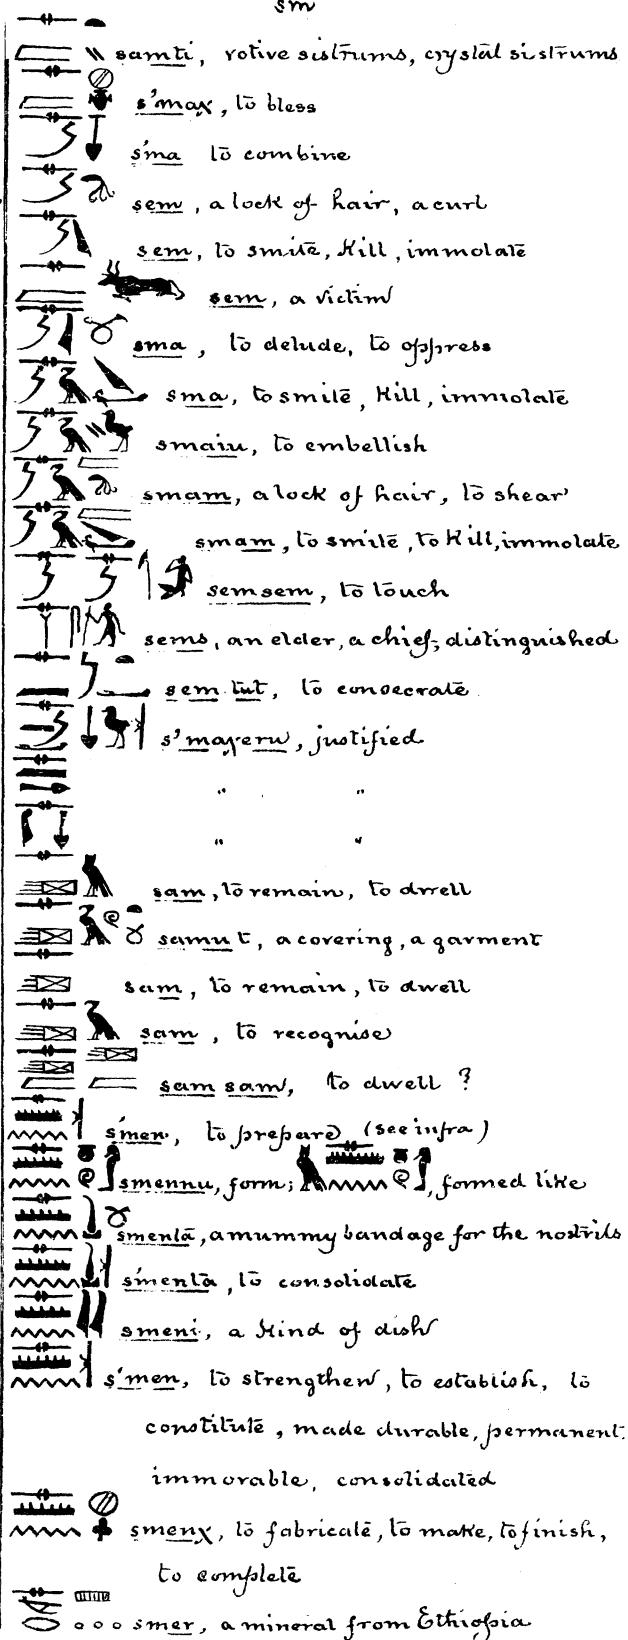 sm
samti, votive sistrums, crystal sistrums
s'maχ, to bless
s'ma to combine
sem, a lock of hair, a curl
sem, to smite, Kill, immolate
sem, a victim
sma, to delude, to oppress
sma, to smite, Kill, immolate
smaiu, to embellish
smam, a lock of hair, to shear
smam, to smite, to Kill, immolate
semsem, to touch
sems, an elder, a chief, distinguished
sem tut, to consecrate
s'maχeru, justified
" "
" "
sam, to remain, to dwell
samut, a covering, a garment
sam, to remain, to dwell
sam, to recognise
sam sam, to dwell ?
s'men, to prepare (see infra)
smennu, form; , formed like
smentā, a mummy bandage for the nostrils
s'menta, to consolidate
smeni, a Kind of dish
s'men, to strengthen, to establish, to
constitute, made durable, permanent
immovable, consolidated
smenχ, to fabricate, to make, to finish,
to complete
smer, a mineral from Ethiopia